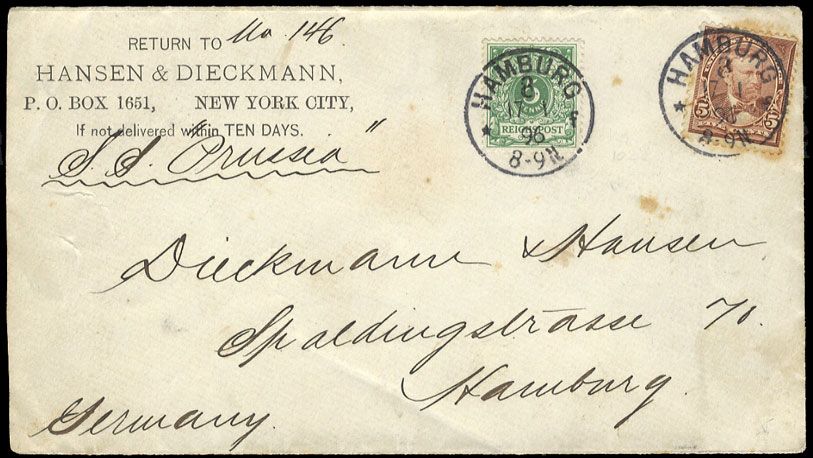 RETURN TO No 146.
HANSEN & DIECKMANN,
P. O. BOX 1651, NEW YORK CITY,
If not delivered within TEN DAYS.
S. S. "Prussia"
HAMBURG
8
17 1
96
8-9N
REICHSPOST
5
HAMBURG
8-9N
5
5
Dieckmann & Hansen
Spaldingstrasse 70.
Hamburg.
Germany.